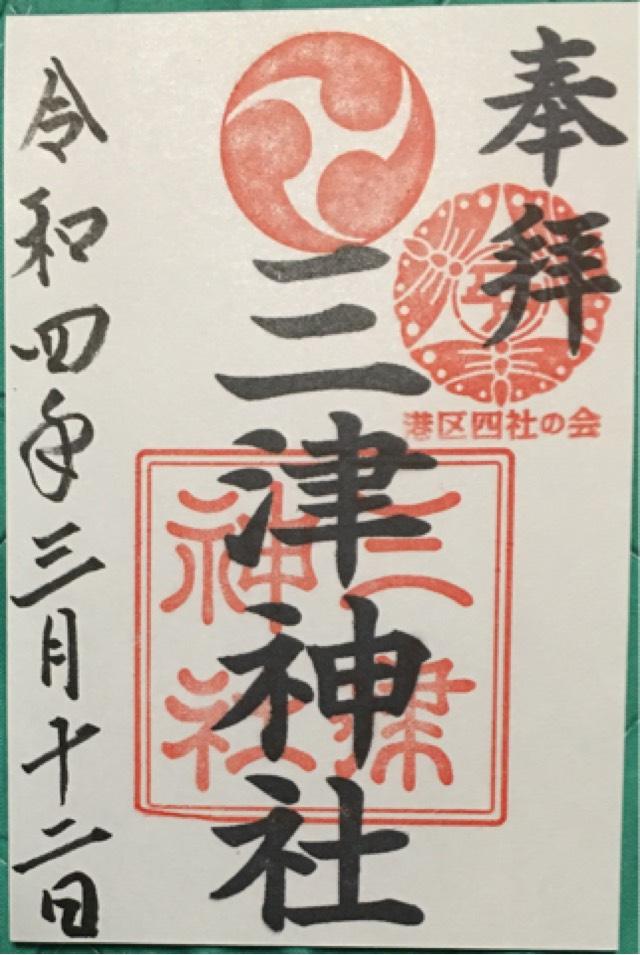 奉拝
港区四社の会
三津神社
三津
神社
令和四年三月十二日